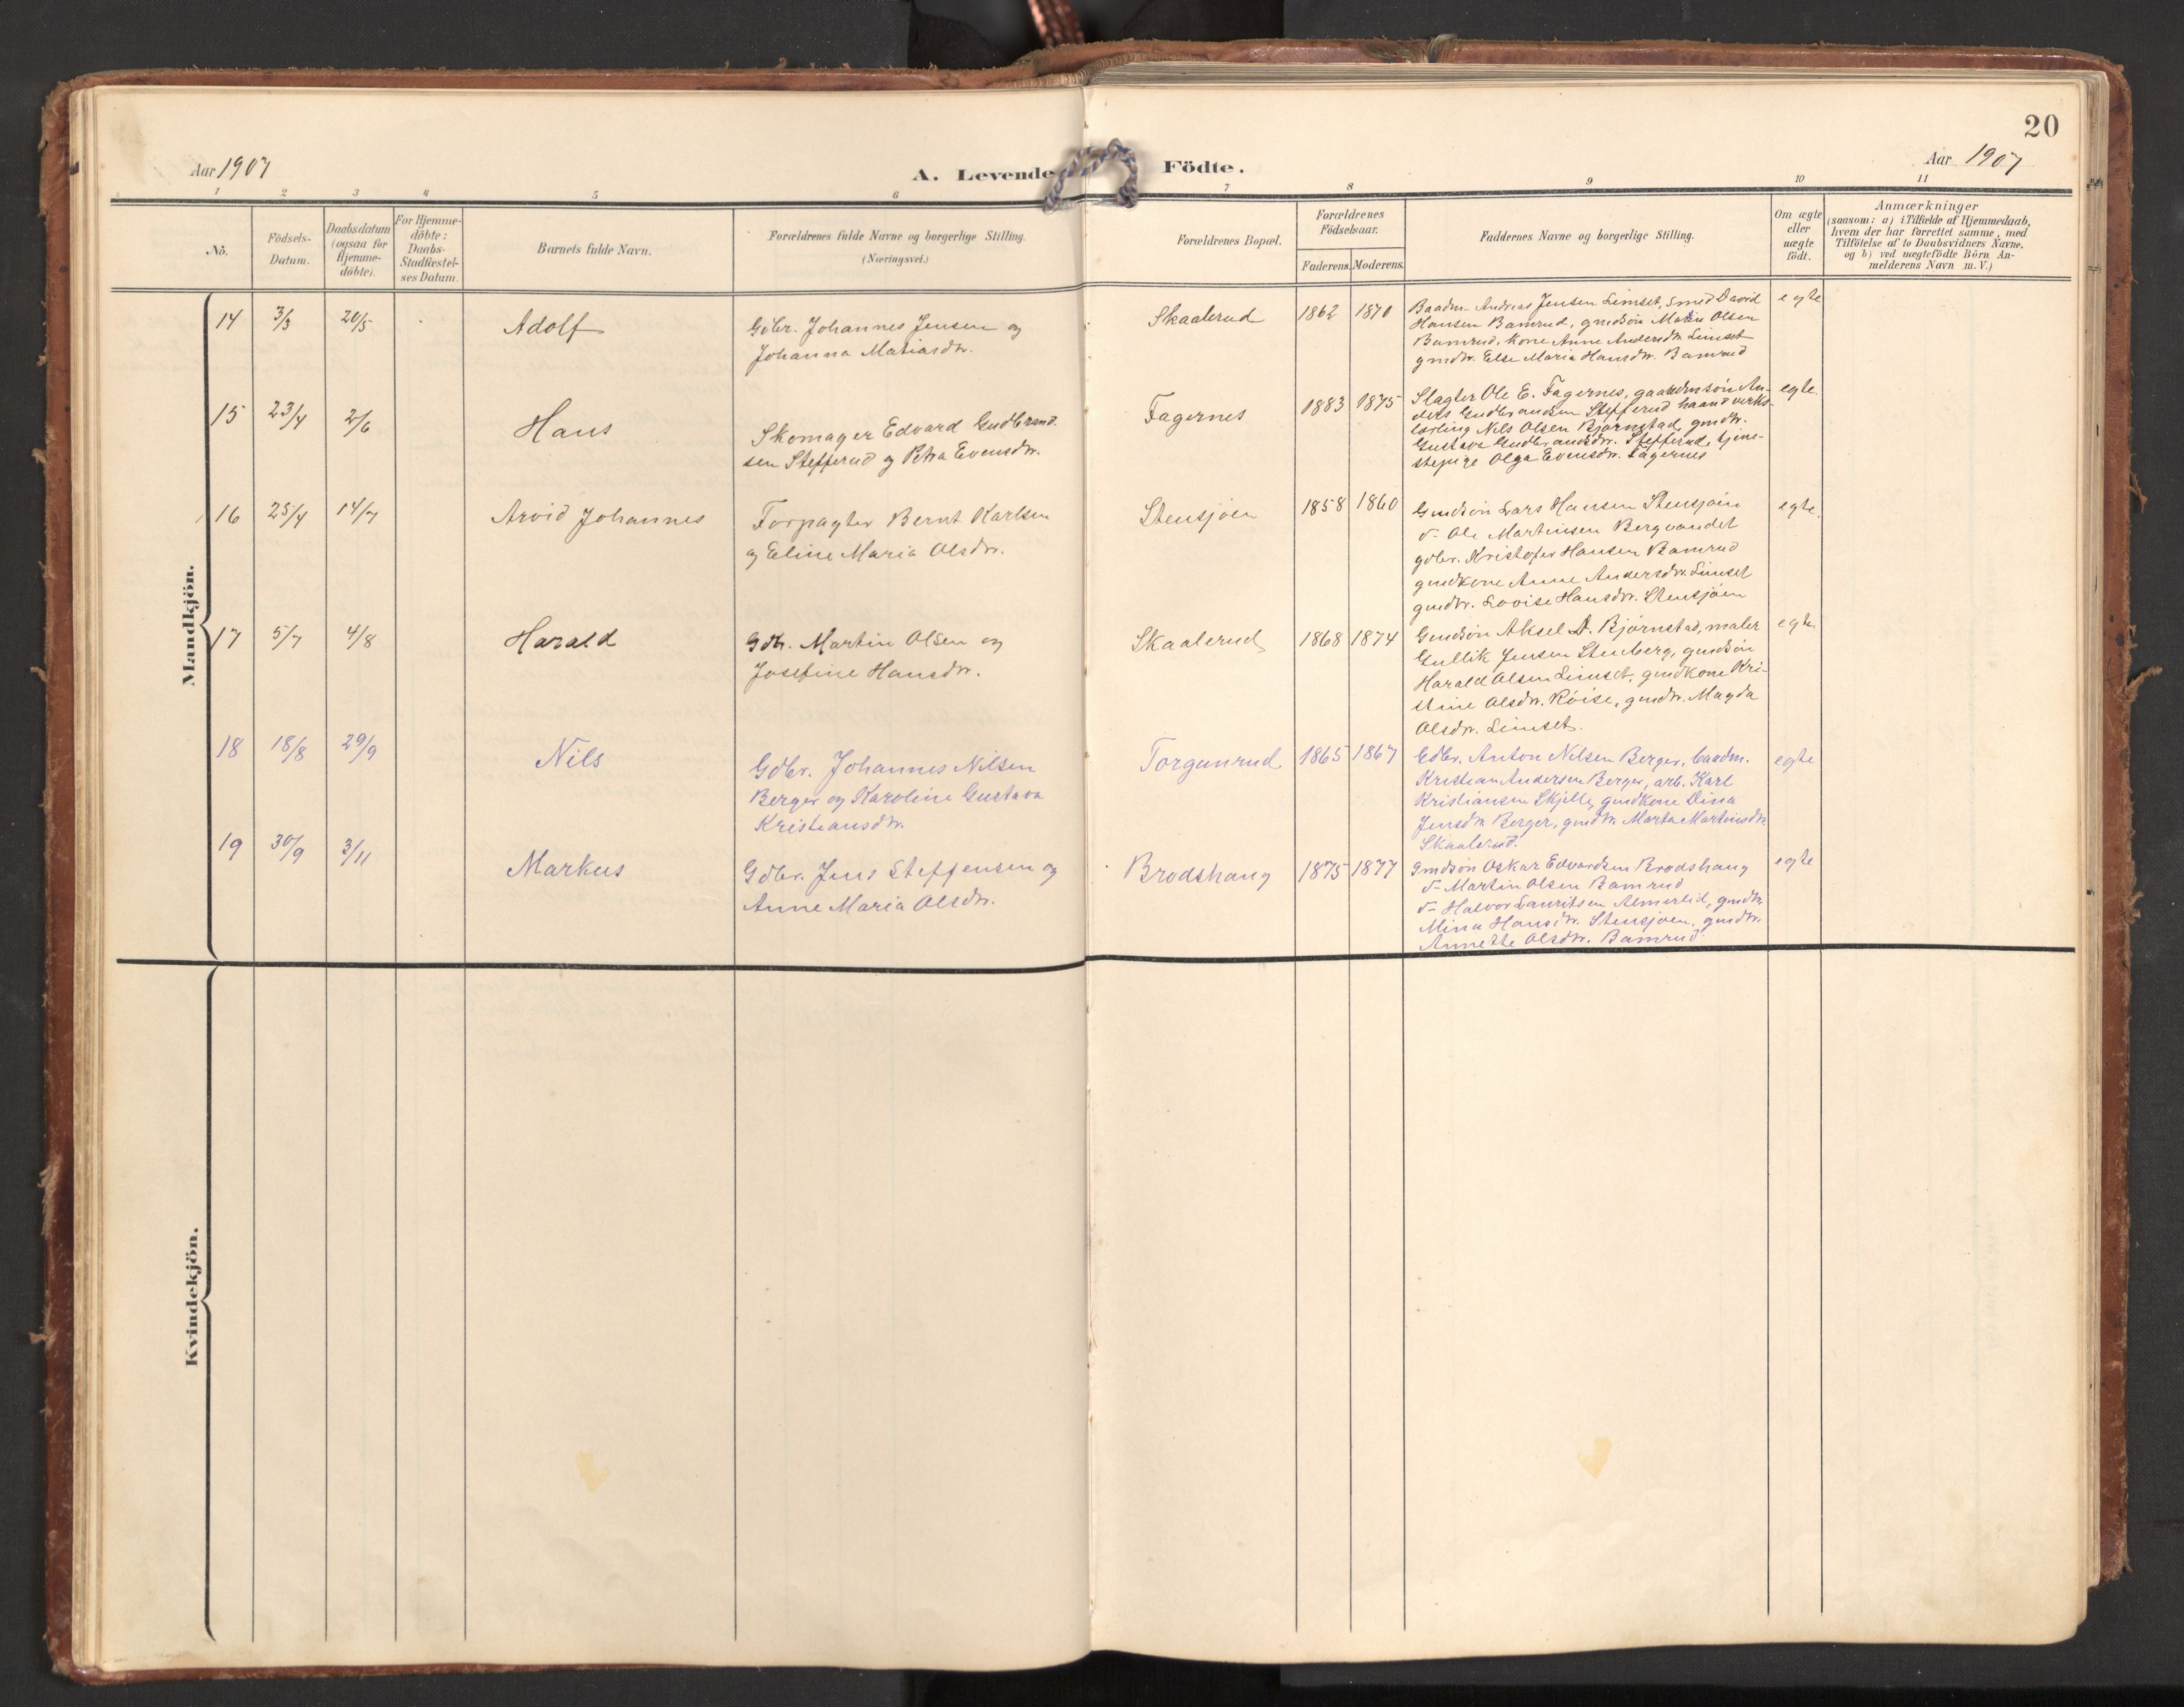 20
Aar 1907
A. Levende Födte.
Aar 1907
1 2 3 4 5 6 7 8 9 10 11
No.
Födsels-Datum.
Daabsdatum (ogsaa for Hjemmedöbte).
For Hjemmedöbte: Daabs-Stadfæstelses Datum.
Barnets fulde Navn.
Forældrenes fulde Navne og borgerlige Stilling.
(Næringsvei.)
Forældrenes Bopæl.
Forældrenes Födselsaar.
Faderens. Moderens.
Faddernes Navne og borgerlige Stilling.
Om ægte eller uægte födt.
Anmærkninger
(saasom: a) i Tilfælde af Hjemmedaab,
hvem der har forrettet samme, med
Tilföielse af to Daabsvidners Navne.
og b) ved uægtefödte Börn An-
melderens Navn m. V.)
Mandkjön.
14 3/3 20/5 Adolf
Gdbr. Johannes Jensen og
Johanna Matiasdtr.
Skaalerud 1862 1870
Baadm. Andreas Jensen Limset, smed David
Hansen Bamrud, gmdsön Martin Olsen
Bamrud, kone Anne Andersdtr. Limset
gmdtr. Else Maria Hansdtr. Bamrud
egte
15 23/4 2/6 Hans
Skomager Edvard Gudbrand-
sen Stefferud og Petra Evensdtr.
Fagernes 1883 1875
Slagter Ole E. Fagernes, gaardmsön An-
ders Gudbrandsen Stefferud haandverks-
lærling Nils Olsen Bjørnstad, gmdtr.
Gustava Gudbrandsdtr. Stefferud, tjene-
stepige Olga Evensdtr. Fagernes
egte.
16 25/4 14/7 Arvid Johannes
Forpagter Bernt Karlsen
og Eline Maria Olsdtr.
Stensjøen 1858 1860
Gmdsön Lars Hansen Stensjøen
d- Ole Martinsen Bergvandet
gdbr. Kristofer Hansen Bamrud
gmdkone Anne Andersdtr. Limset
gmdtr. Lovise Hansdtr. Stensjøen
egte.
17 5/7 4/8 Harald
Gdbr. Martin Olsen og
Josefine Hansdtr.
Skaalerud 1868 1874
Gmdsön Aksel A. Bjørnstad, maler
Gullik Jensen Stenberg, gmdsön
Harald Olsen Limset, gmdkone Kri-
stine Olsdtr. Røise, gmdtr. Magda
Olsdtr. Limset.
egte.
18 18/8 29/9 Nils
Gdbr. Johannes Nilsen
Berger og Karoline Gustava
Kristiansdtr.
Torgunrud 1865 1867
Gdbr. Anton Nilsen Berger, baadm.
Kristian Andersen Berger, arb. Karl
Kristiansen Skjelle, gmdkone Dina
Jensdtr. Berger, gmdtr. Marta Martinsdtr.
Skaalerud.
egte
19 30/9 3/11 Markus
Gdbr. Jens Steffensen og
Anne Maria Olsdtr.
Brodshaug 1875 1877
Gmdsön Oskar Edvardsen Brodshaug
d- Martin Olsen Bamrud
d- Halvor Lauritsen Almerlid, gmdtr.
Mina Hansdtr. Stensjøen, gmdtr.
Annette Olsdtr. Bamrud
egte
Kvindekjön.